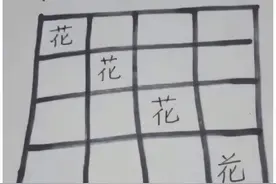 花
花
花
花